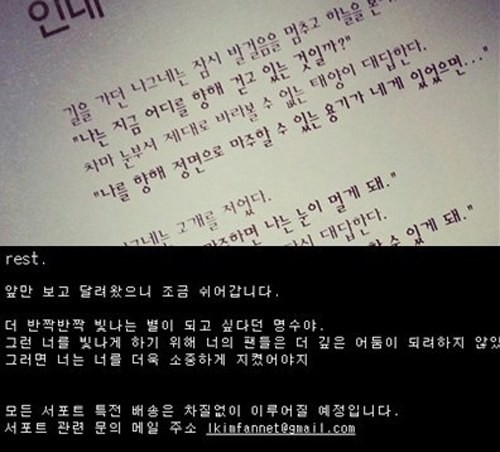 인내
길을 가던 나그네는 잠시 발걸음을 멈추고 하늘을 본
"나는 지금 어디를 향해 걷고 있는 것일까?"
차마 눈부셔 제대로 바라볼 수 없는 태양이 대답한다.
"나를 향해 정면으로 마주할 수 있는 용기가 네게 있었으면..."
고개를 저었다.
마주하면 나는 눈이 멀게 돼."
다시 대답한다.
수 있게 돼."
rest.
앞만 보고 달려왔으니 조금 쉬어갑니다.
더 반짝반짝 빛나는 별이 되고 싶다던 명수야.
그런 너를 빛나게 하기 위해 너의 팬들은 더 깊은 어둠이 되려하지 않았
그러면 너는 너를 더욱 소중하게 지켰어야지
모든 서포트 특전 배송은 차질없이 이루어질 예정입니다.
서포트 관련 문의 메일 주소 lkimfannet@gmail.com